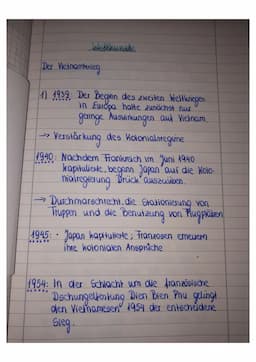 Weltkunde
Der Vietnamkrieg
1) 1939: Der Beginn des zweiten Weltkrieges
in Europa hatte zunächst nur
geringe Auswirkungen auf Vietnam.
→ Verstärkung des Kolonialregime
1940: Nachdem Frankreich im Juni 1940
kapitulierte, begann Japan auf die Kolo-
nialregierung Druck auszuüben.
→ Durchmarschrecht, die Stationierung von
Truppen und die Benutzung von Flugplätzen
1945: • Japan kapitulierte; Franzosen erneuern
ihre kolonialen Ansprüche
1954: In der Schlacht um die französische
Dschungelfestung Dien Bien Phu gelingt
den Vietnamesen 1954 der entscheidene
Sieg.